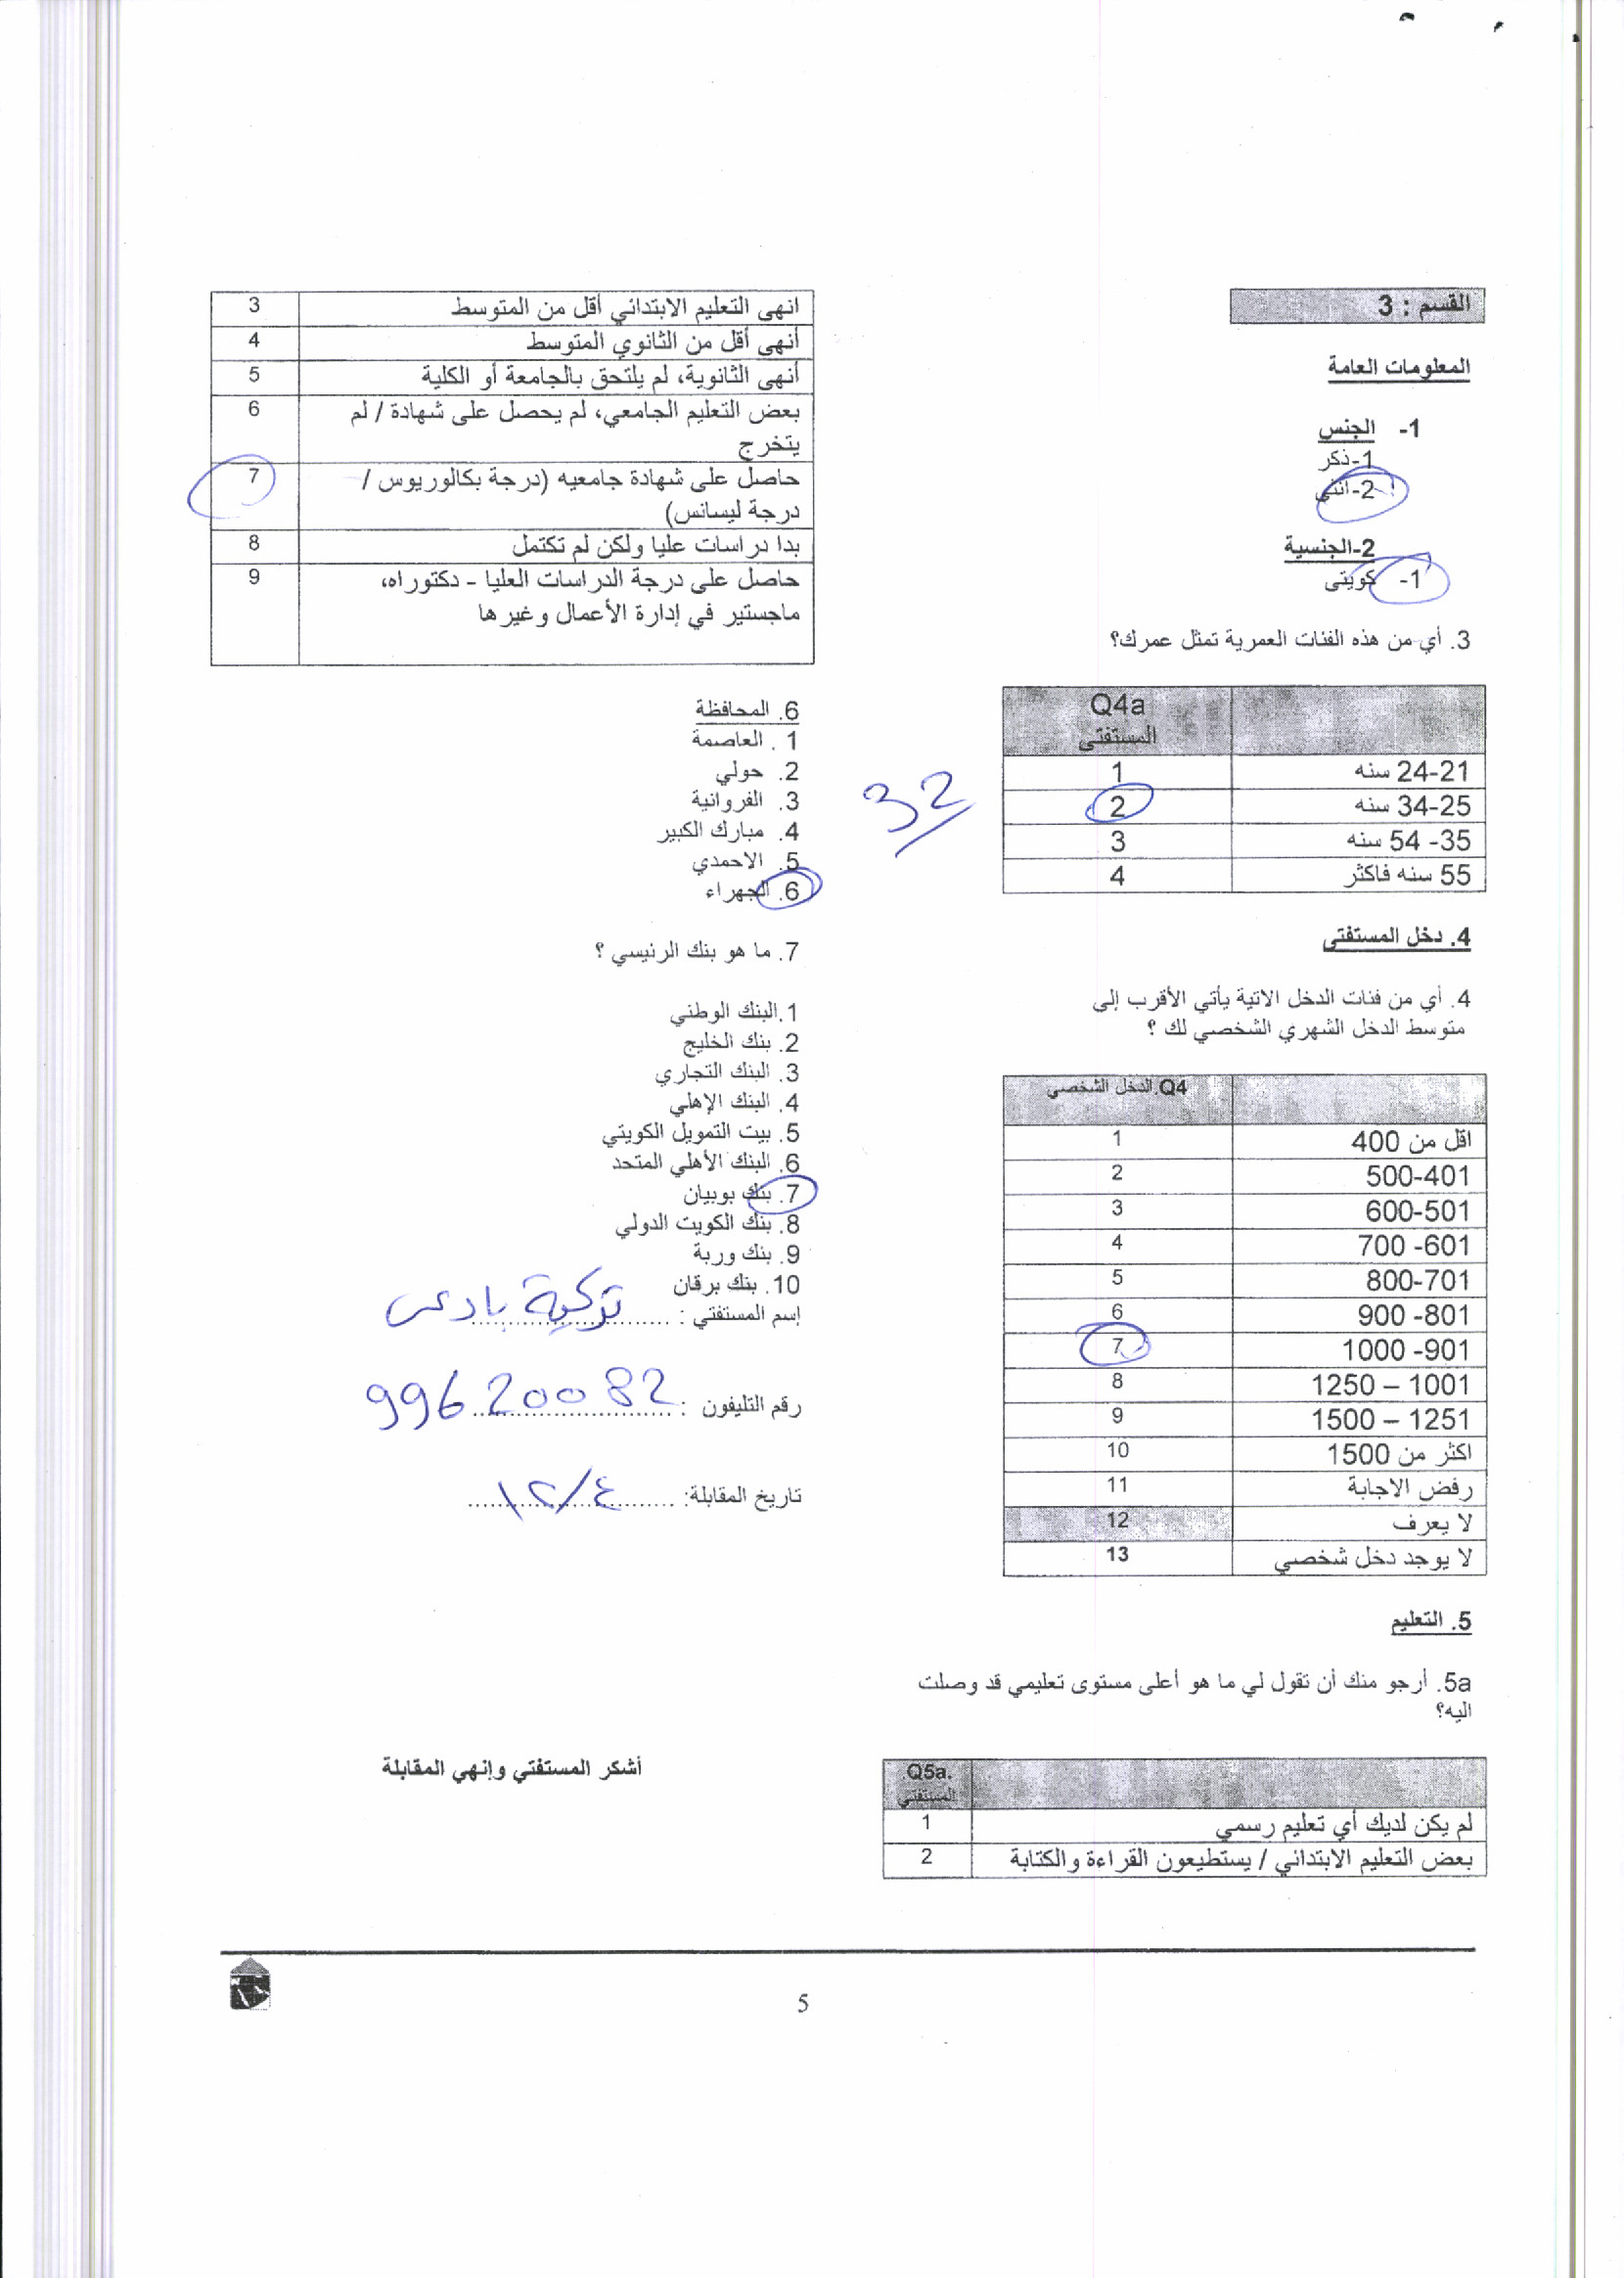 القسم : 3
المعلومات العامة
1- الجنس
1-ذكر
2-انثي
2-الجنسية
1- كويتى
3. أي من هذه الفئات العمرية تمثل عمرك؟
Q4a
المستفتى
24-21 سنه 1
34-25 سنه 2
35- 54 سنه 3
55 سنه فاكثر 4
32
4. دخل المستفتى
4. أي من فئات الدخل الاتية يأتي الأقرب إلى
متوسط الدخل الشهري الشخصي لك ؟
Q4.الدخل الشخصي
اقل من 400 1
500-401 2
600-501 3
700 -601 4
800-701 5
900 -801 6
1000 -901 7
1250 – 1001 8
1500 – 1251 9
اكثر من 1500 10
رفض الاجابة 11
لا يعرف 12
لا يوجد دخل شخصي 13
5. التعليم
5a. أرجو منك أن تقول لي ما هو أعلى مستوى تعليمي قد وصلت
اليه؟
Q5a.
المستفتي
لم يكن لديك أي تعليم رسمي 1
بعض التعليم الابتدائي / يستطيعون القراءة والكتابة 2
انهى التعليم الابتدائي أقل من المتوسط 3
أنهى أقل من الثانوي المتوسط 4
أنهى الثانوية، لم يلتحق بالجامعة أو الكلية 5
بعض التعليم الجامعي، لم يحصل على شهادة / لم 6
يتخرج
حاصل على شهادة جامعيه (درجة بكالوريوس / 7
درجة ليسانس)
بدا دراسات عليا ولكن لم تكتمل 8
حاصل على درجة الدراسات العليا - دكتوراه، 9
ماجستير في إدارة الأعمال وغيرها
6. المحافظة
1 . العاصمة
2. حولي
3. الفروانية
4. مبارك الكبير
5. الاحمدي
6. الجهراء
7. ما هو بنك الرئيسي ؟
1.البنك الوطني
2. بنك الخليج
3. البنك التجاري
4. البنك الإهلي
5. بيت التمويل الكويتي
6. البنك الأهلي المتحد
7. بنك بوبيان
8. بنك الكويت الدولي
9. بنك وربة
10. بنك برقان
إسم المستفتي : تركية
رقم التليفون : 99620082
تاريخ المقابلة: ١٢/٤
أشكر المستفتي وإنهي المقابلة
5